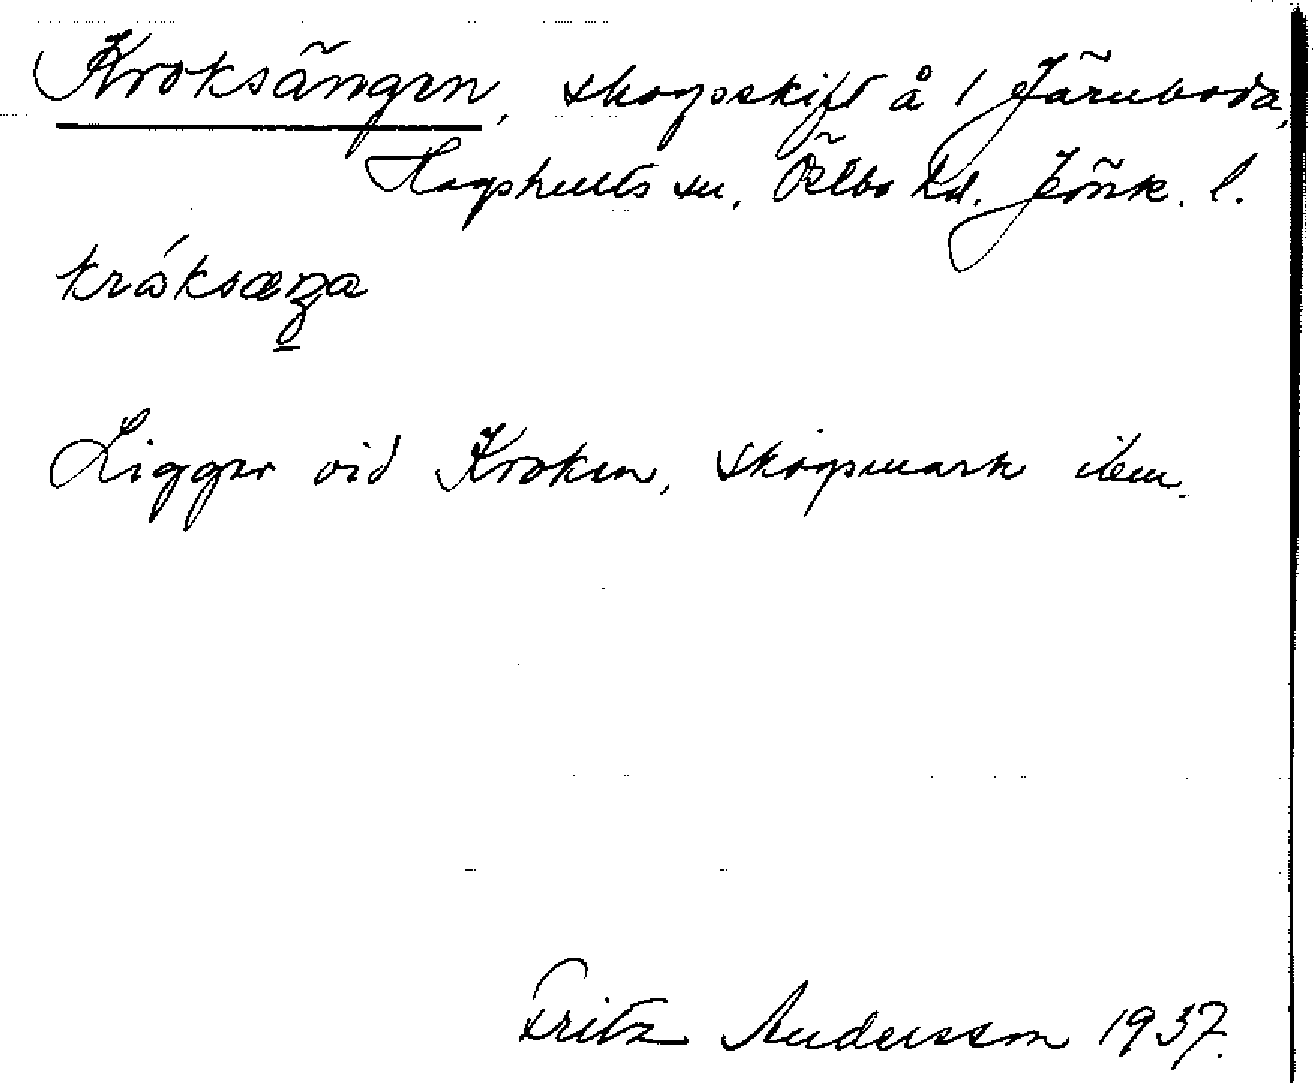 Kroksängen, skogsskift å 1 Järnboda,
Hagshults sn, Östbo hd. Jönk. l.
Ligger vid Kroken, skogsmark ibm.
Fritz Andersson 1937.